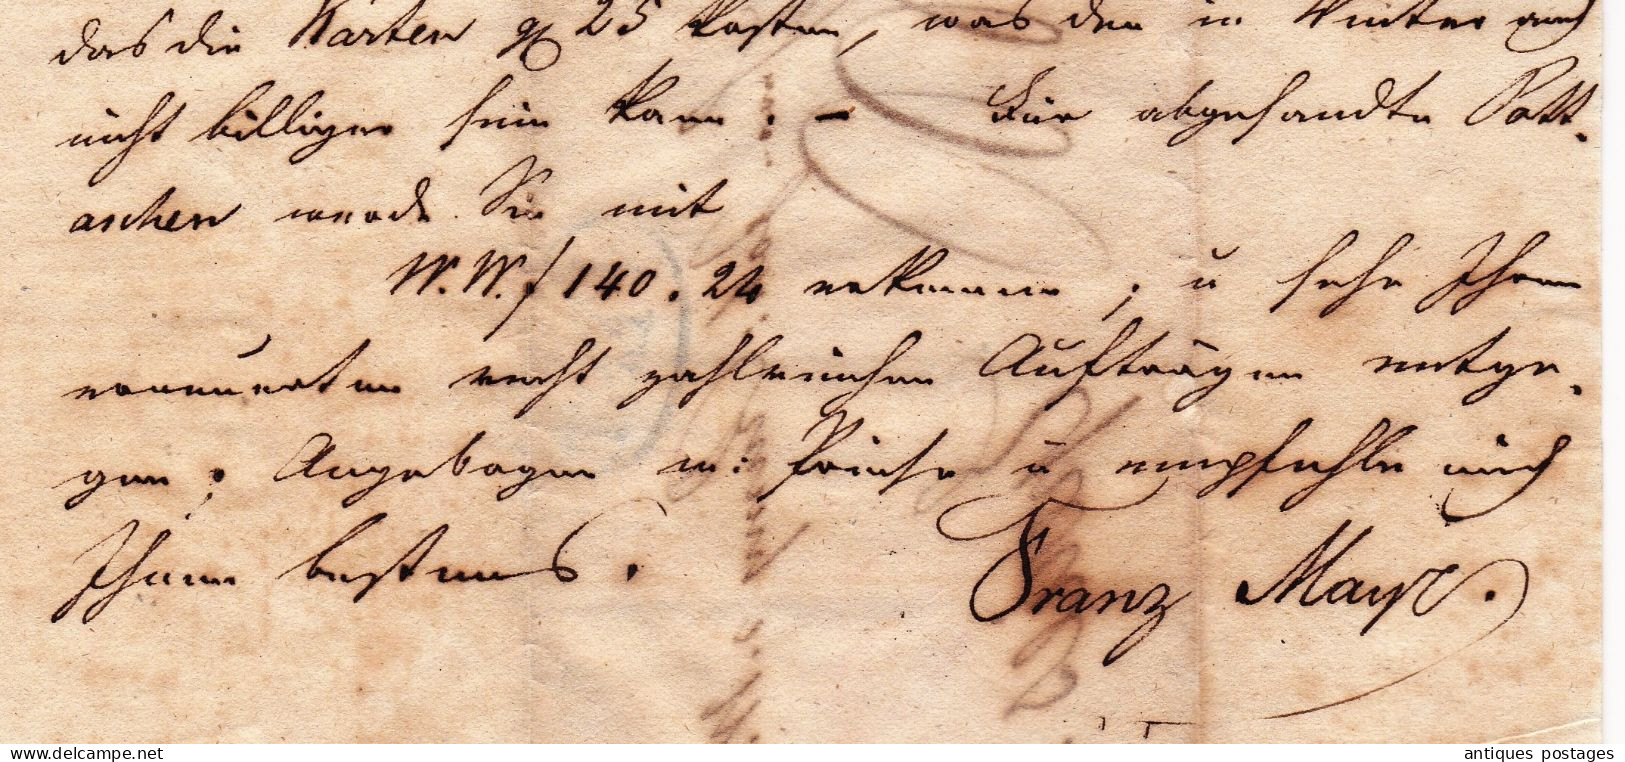 das die Karten 25 kosten, was den in Winter auch
nicht billiger sein kann. – Für abgesandte Pott-
aschen werde Sie mit
W.W. f 140.24 erkennen; u sehe Ihren
erneuerten recht zahlreichen Aufträgen entge-
gen; u empfehle mich
Ihnen bestens.
Franz Mayr.
delcampe.net
antiques postages